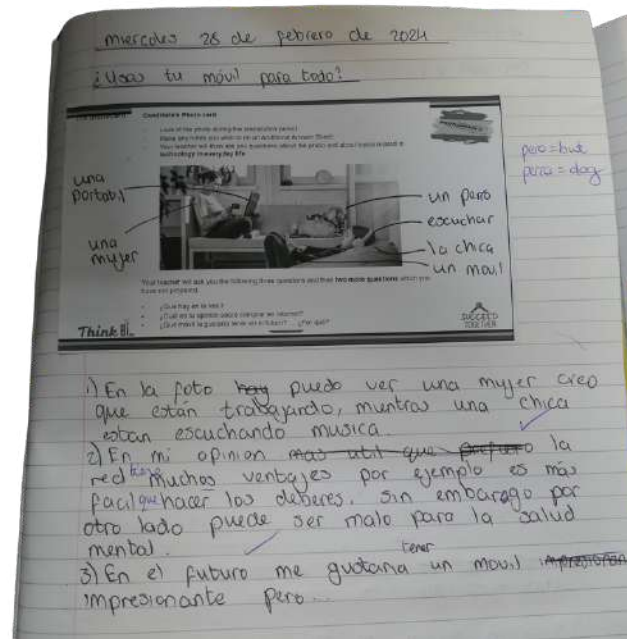 miercoles 28 de febrero de 2024
¿Usas tu móvil para todo?
Candidate's Photo card
Look at the photo during the preparation period.
Make any notes you wish to on an additional Answer Sheet.
Your teacher will then ask you questions about the photo and about topics related to
technology in everyday life
una
portabil
una
mujer
un pero
escuchar
la chica
un movil
pero = but
pero = dog
Your teacher will ask you the following three questions and then two more questions which you
have not prepared.
¿Qué hay en la foto?
¿Cuál es tu opinión sobre comprar en internet?
¿Qué móvil te gustaría tener en el futuro? ... ¿Por qué?
Think Bi
SUCCEED
TOGETHER
1) En la foto hay puedo ver una mujer creo
que están trabajando, muntras una chica
estan escuchando musica.
2) En mi opinion mas util que prefiero la
red tiene muchos ventajes por ejemplo es más
facil que hacer los deberes. Sin embargo por
otro lado puede ser malo para la salud
mental.
3) En el futuro me gustaria tener un movil impresionan
impresionante pero...